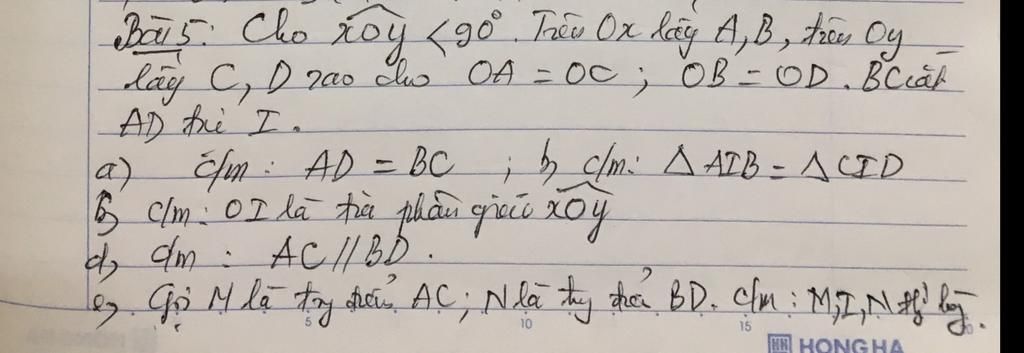 Bài 5: Cho xOy < 90°. Trên Ox lấy A, B, trên Oy
lấy C, D sao cho OA = OC ; OB = OD. BC cắt
AD tại I.
a) c/m : AD = BC ; b, c/m: △AIB = △CID
b, c/m: OI là tia phân giác xOy
d, c/m : AC // BD.
e, Gọi M là tr điểm AC; N là tr điểm BD. c/m : M, I, N thẳng hàng.
5 10 15 20
HONG HA
HONG HA